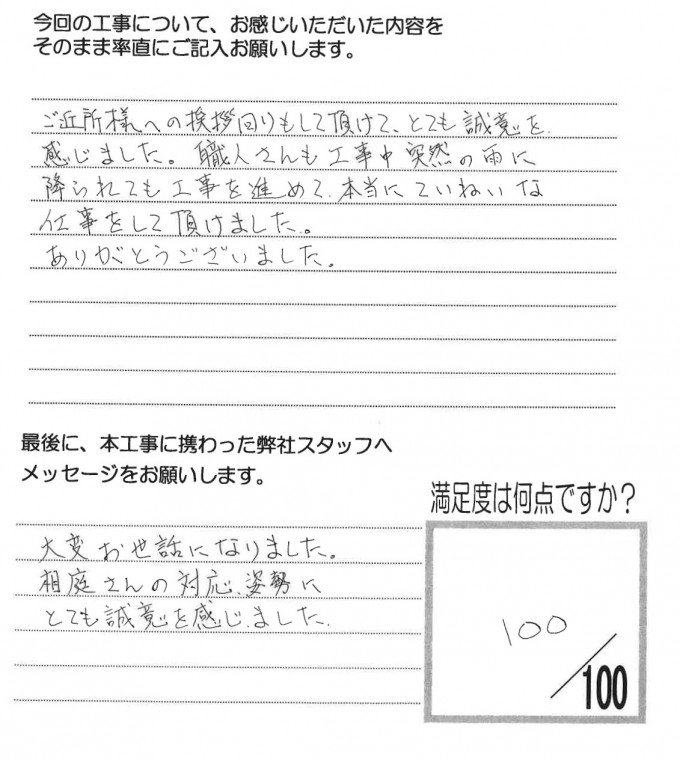 今回の工事について、お感じいただいた内容を
そのまま率直にご記入お願いします。
ご近所様への挨拶回りもして頂けて、とても誠意を
感じました。職人さんも工事中突然の雨に
降られても工事を進めて、本当にていねいな
仕事をして頂けました。
ありがとうございました。
最後に、本工事に携わった弊社スタッフへ
メッセージをお願いします。
大変お世話になりました。
相庭さんの対応、姿勢に
とても誠意を感じました。
満足度は何点ですか？
100
/100